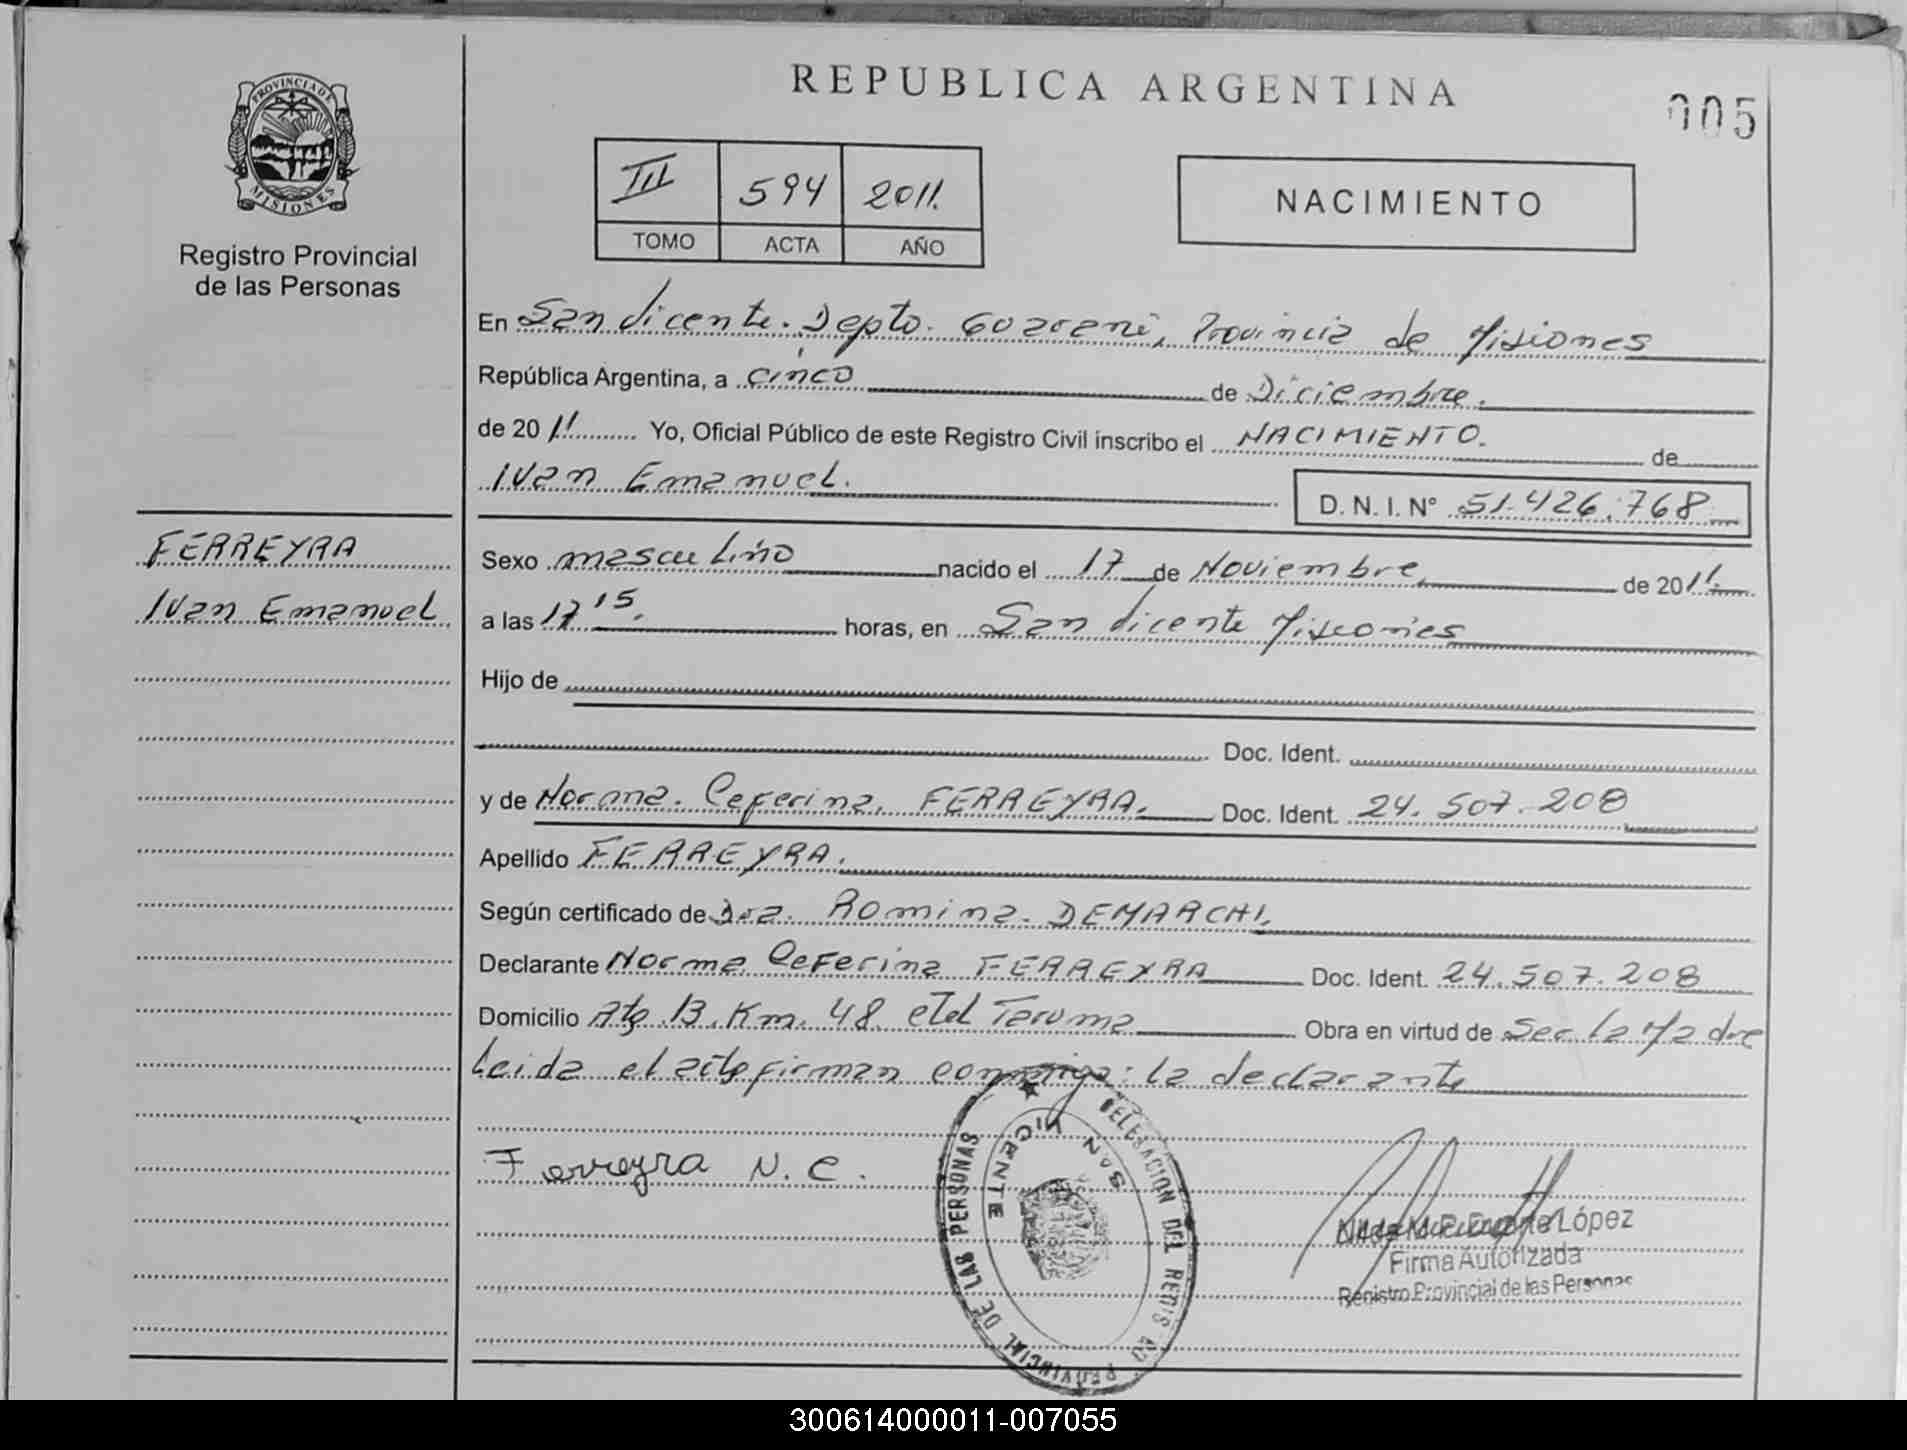 REPUBLICA ARGENTINA
005
PROVINCIA DE
MISIONES
Registro Provincial
de las Personas
III 594 2011.
TOMO ACTA AÑO
NACIMIENTO
En San Vicente. Depto. Guarani, Provincia de Misiones
República Argentina, a cinco de Diciembre.
de 2011 Yo, Oficial Público de este Registro Civil inscribo el NACIMIENTO. de
Ivan Emanuel.
D. N. I. Nº 51.426.768
FERREYRA
Ivan Emanuel
Sexo masculino nacido el 17 de Noviembre de 2011.
a las 17 15. horas, en San Vicente Misiones
Hijo de
Doc. Ident.
y de Norma. Ceferina. FERREYRA. Doc. Ident. 24.507.208
Apellido FERREYRA.
Según certificado de Dra. Romina. DEMARCHI.
Declarante Norma Ceferina FERREYRA Doc. Ident. 24.507.208
Domicilio Rta 13. Km. 48. Taruma Obra en virtud de Ser la Madre
Leida el acta firman conmigo: la declarante
Ferreyra N. C.
DELEGACION DEL REGISTRO PROVINCIAL DE LAS PERSONAS
SAN VICENTE
Duarte López
Firma Autorizada
Registro Provincial de las Personas
300614000011-007055